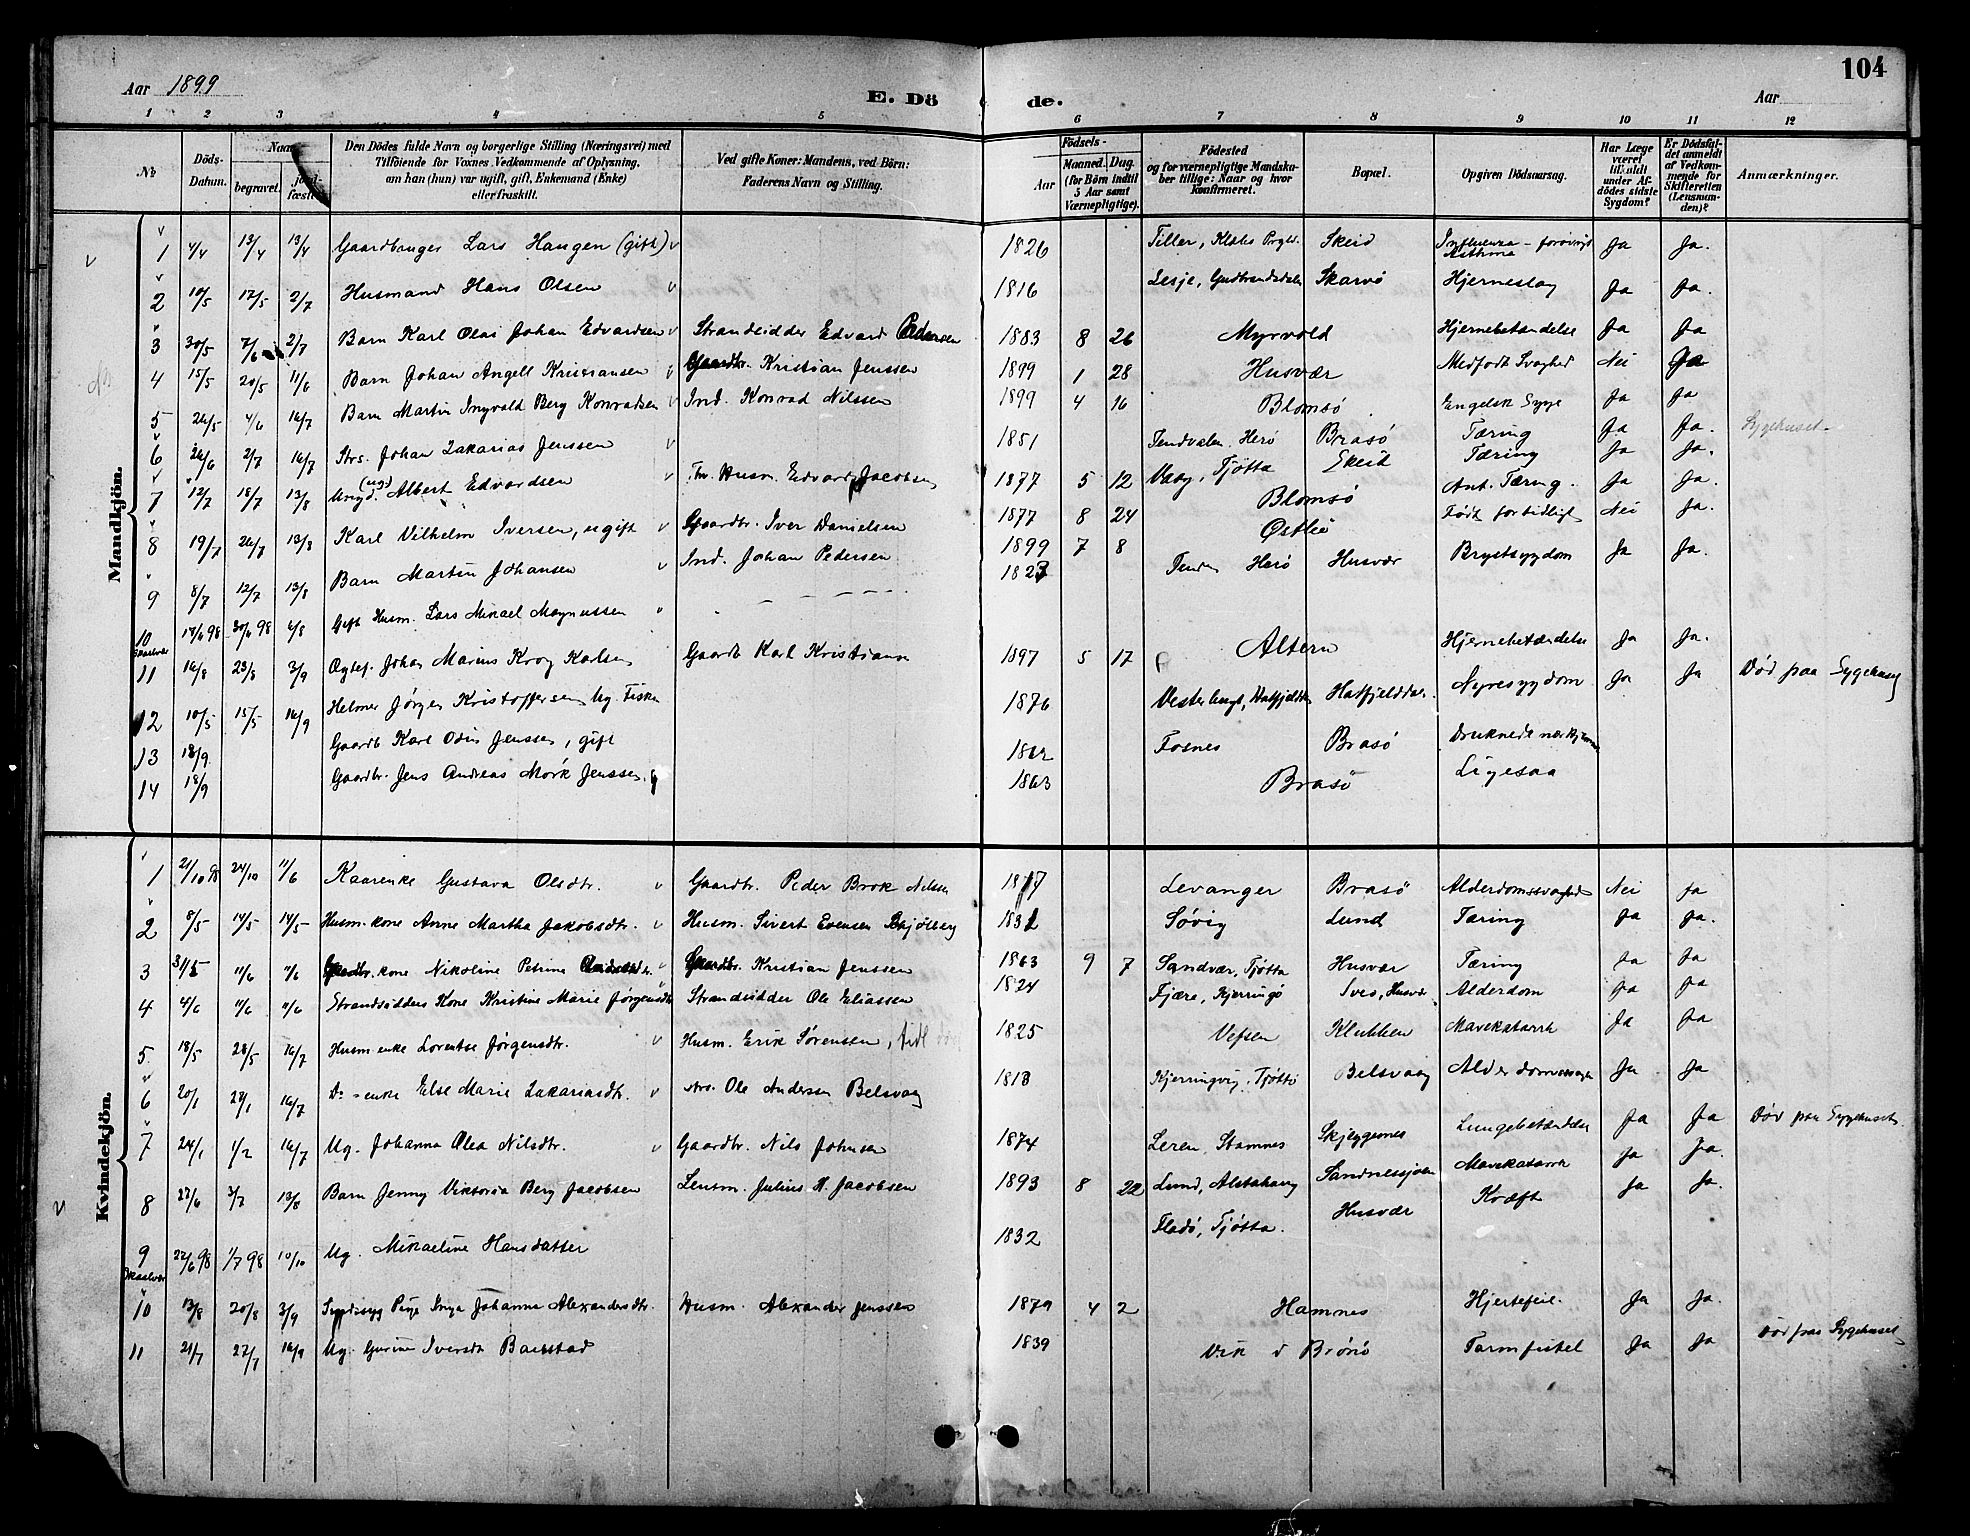 Aar 1899
E. Dö de.
Aar
104
1 2 3 4 5 6 7 8 9 10 11 12
No
Döds-Datum.
Naar
begravet. jord-fæstet
Den Dödes fulde Navn og borgerlige Stilling (Næringsvei) med
Tilföiende for Voxnes Vedkommende af Oplysning,
om han (hun) var ugift, gift, Enkemand (Enke)
eller fraskilt.
Ved gifte Koner: Mandens, ved Börn:
Faderens Navn og Stilling.
Födsels-
Aar
Maaned. Dag.
(for Börn indtil
5 Aar samt
Værnepligtige).
Födested
og for værnepligtige Mandska-
ber tillige: Naar og hvor
konfirmeret.
Bopæl.
Opgiven Dödsaarsag.
Har Læge
været
tilkaldt
under Af-
dödes sidste
Sygdom?
Er Dödsfal-
det anmeldt
af Vedkom-
mende for
Skifteretten
(Lensman-
den)?
Anmærkninger.
Mandkjön.
1 4/4 13/4 13/4 Gaardbruger Lars Haugen (gift) 1826 Tiller, Klæbo Prgld. Skeid Influenza - forøvrigt Asthma Ja Ja.
2 10/5 17/5 2/7 Husmand Hans Olsen 1816 Lesje, Gudbrandsdalen Skarvø Hjerneslag Ja Ja.
3 30/5 7/6 2/7 Barn Karl Olai Johan Edvardsen Strandsidder Edvard Pedersen 1883 8 26 Myrvold Hjernebetændelse Ja Ja
4 15/5 20/5 11/6 Barn Johan Angell Kristiansen Gaardbr. Kristian Jenssen 1899 1 28 Husvær Medfødt Svaghed Nei Ja
5 26/5 4/6 16/7 Barn Martin Ingvald Berg Konradsen Ind. Konrad Nilssen 1899 4 16 Blomsö Engelsk Syge Ja Ja
6 26/6 2/7 16/7 Strs. Johan Zakarias Jenssen 1851 Tenvalen, Herö Brasö Tæring Ja Ja. Sygehuset
7 12/7 18/7 13/8 Ungd. (ug) Albert Edvardsen Fhv. Husm. Edvard Jacobsen 1877 5 12 Vaag, Tjötta Skeid Tæring Ja Ja.
8 19/7 26/7 13/8 Karl Vilhelm Iversen, ugift Gaardbr. Iver Danielsen 1877 8 24 Blomsö Ant. Tæring. Ja Ja.
9 8/7 12/7 13/8 Barn Martin Johansen Ind. Johan Pedersen 1899 7 8 Østlie Født for tidligt Nei Ja.
10 17/6 98 30/6 98 6/8 Gift Husm. Lars Mikael Magnussen 1823 Herö Husvær Brystsygdom Ja Ja.
11 16/8 23/8 3/9 Johan Marius Krog Karlsen Gaardb Karl Kristiansen 1897 5 17 Altern Hjernebetændelse Ja Ja.
12 10/5 15/5 16/9 Helmer Jørgen Kristoffersen Ug. Fisker 1876 Hatfjelddalen Hatfjelddalen Nyresygdom Ja Ja Død paa Sygehuset
13 18/9 Gaardb Karl Odin Jenssen, gift Fosnes Brasö Druknede nær hjemmet
14 18/9 Gaardbr. Jens Andreas Mørk Jenssen, g 1863 Brasö Ligesaa
Kvindekjön.
1 21/10 98 24/10 11/6 Kaarenke Gustava Olsdtr. Gaardbr. Peder Brok Nilssen 1817 Levanger Brasö Alderdomssvaghed Nei Ja
2 8/5 14/5 14/5 Husm.kone Anne Martha Jakobsdtr. Husm. Sivert Evensen 1832 Søvig Lund Tæring Ja Ja.
3 31/5 11/6 11/6 Gaardbr. kone Nikoline Petrine Andersdtr. Gaardbr. Kristian Jenssen 1863 9 7 Sandvær, Tjötta Husvær Tæring Ja Ja
4 4/6 11/6 11/6 Strandsidders Kone Kristine Marie Jørgensdtr Strandsidder Ole Eliassen 1824 Fjære, Kjerringö Husvær Alderdom Ja Ja
5 18/5 28/5 16/7 Husm.enke Lorentse Jørgensdtr. Husm. Erik Sørensen, tidl 1825 Vefsen Klubben Mavekatarrh Ja Ja
6 20/1 29/1 16/7 Do - enke Else Marie Zakariasdtr. Strs. Ole Andersen Belsvaag 1818 Kjerringvig, Tjötta Belsvaag Alderdomssvaghed Ja Ja
7 24/1 1/2 16/7 Ug. Johanna Olea Nilsdtr. Gaardbr. Nils Johnsen 1874 Leren, Stamnes Skjeggesnes Lungebetændelse Ja Ja Død paa Sygehuset.
8 27/6 3/7 13/8 Barn Jenny Viktoria Berg Jacobsen Lensm. Julius H. Jacobsen 1893 8 22 Lund, Alstahaug Sandnessjøen Mavekatarrh Ja Ja.
9 22/6 98 1/7 98 10/10 Ug. Mikaeline Hansdatter 1832 Fladö, Tjötta. Husvær Kræft Ja Ja.
10 13/8 20/8 3/9 Pige Inga Johanna Alexandersdtr. Husm. Alexander Jenssen 1879 4 2 Hamnes Hjertefeil. Ja Ja.
11 21/7 27/7 16/9 Ug. Gurine Iversdtr Baustad 1839 Vik i Brønö Tarmfistel Ja Ja Død paa Sygehuset